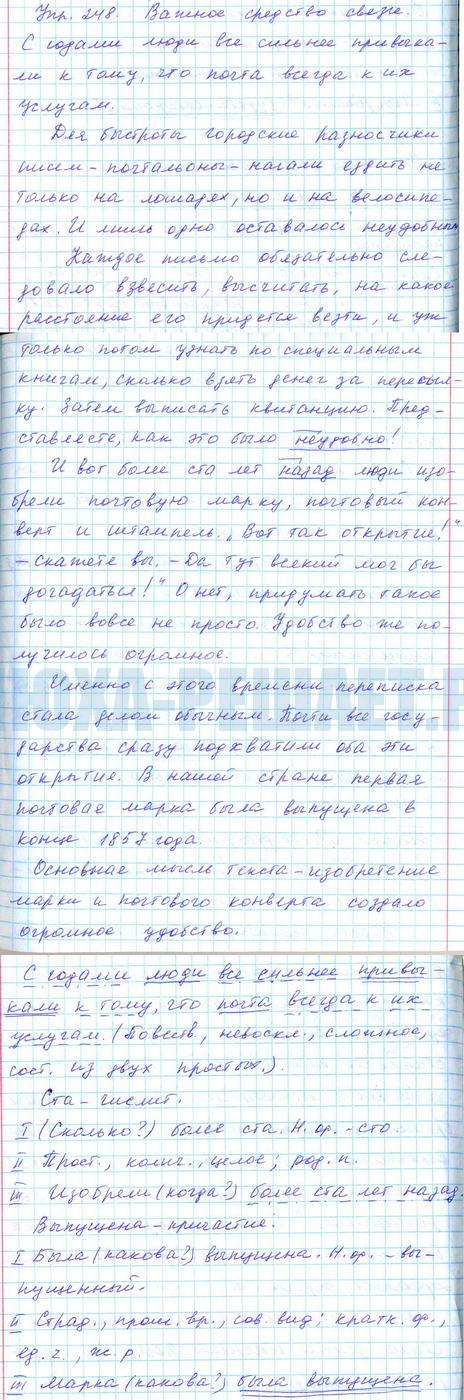 Упр. 248. Важное средство связи.
С годами люди все сильнее привыка-
ли к тому, что почта всегда к их
услугам.
Для быстроты городские разносчики
писем - почтальоны - начали ездить не
только на лошадях, но и на велосипе-
дах. И лишь одно оставалось неудобным
Каждое письмо обязательно сле-
довало взвесить, высчитать, на какое
расстояние его придется везти, и уж
только потом узнать по специальным
книгам, сколько взять денег за пересыл-
ку. Затем выписать квитанцию. Пред-
ставляете, как это было неудобно!
И вот более ста лет назад люди изо-
брели почтовую марку, почтовый кон-
верт и штемпель. „Вот так открытие!"
- скажете вы. - Да тут всякий мог бы
догадаться!" О нет, придумать такое
было вовсе не просто. Удобство же по-
лучилось огромное.
Именно с этого времени переписка
стала делом обычным. Почти все госу-
дарства сразу подхватили оба эти
открытие. В нашей стране первая
почтовая марка была выпущена в
конце 1857 года.
Основная мысль текста - изобретение
марки и почтового конверта создало
огромное удобство.
С годами люди все сильнее привы-
кали к тому, что почта всегда к их
услугам. (Повеств., невоскл., сложное,
сост. из двух простых.).
Ста - числит.
I (Сколько?) более ста. Н.ф. - сто.
II Прост., колич., целое; род. п.
III Изобрели (когда?) более ста лет назад.
Выпущена - причастие.
I Была (какова?) выпущена. Н.ф. - вы-
пущенный.
II Страд., прош. вр., сов. вид; кратк. ф.,
ед. ч., ж. р.
III Марка (какова?) была выпущена.